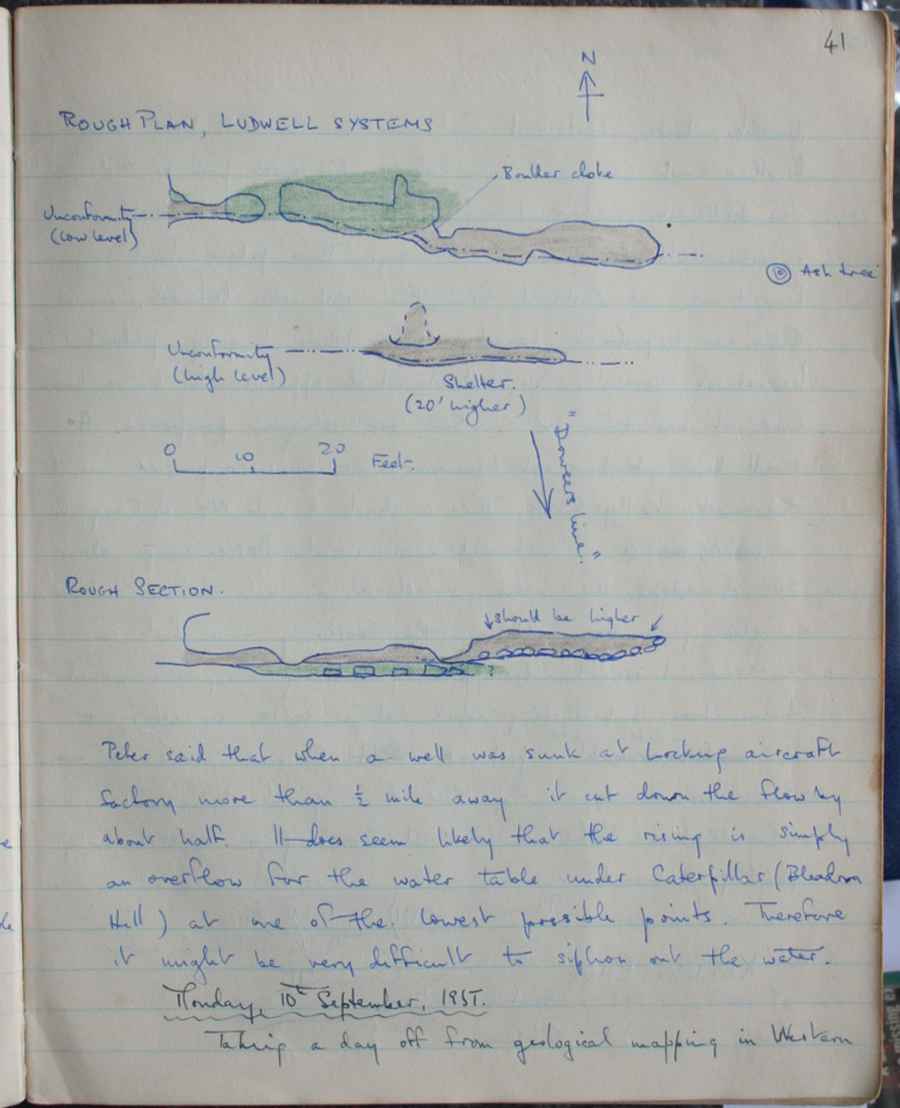 41
N
ROUGH PLAN, LUDWELL SYSTEMS
Boulder choke
Unconformity
(low level)
Ash tree
Unconformity
(high level)
Shelter.
(20' higher)
"Dowsers line."
0 10 20 Feet.
ROUGH SECTION.
should be higher
?
Peter said that when a well was sunk at Locking aircraft
factory more than ½ mile away it cut down the flow by
about half. It does seem likely that the rising is simply
an overflow for the water table under Caterpillar (Bleadon
Hill) at one of the lowest possible points. Therefore
it might be very difficult to siphon out the water.
Monday, 10th September, 1957.
Taking a day off from geological mapping in Western